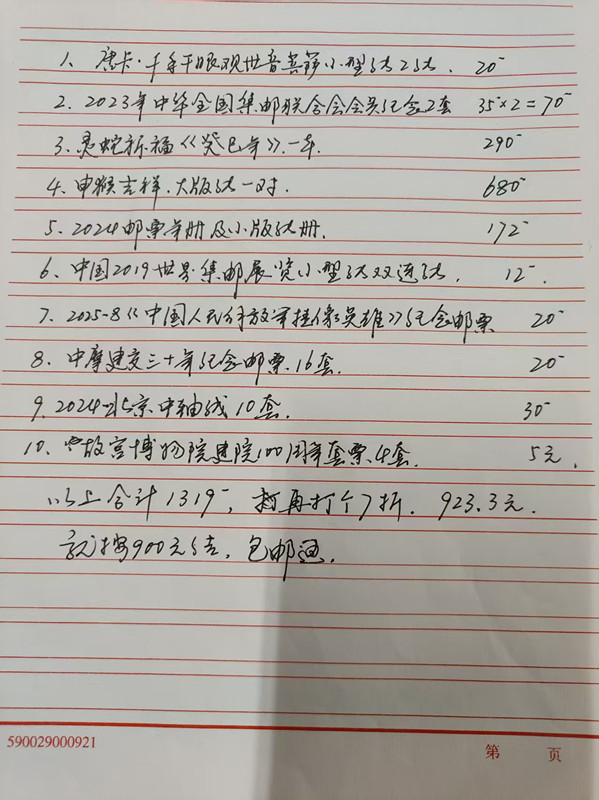 1、唐卡·千手千眼观世音菩萨小型张2张. 20-
2、2023年中华全国集邮联合会会员纪念2套 35-×2=70-
3、灵蛇祈福《癸巳年》.一本. 290-
4、申猴吉祥.大版张一对. 680-
5、2024邮票年册及小版张册. 172-
6、中国2019世界集邮展览小型张双连张. 12-.
7、2025-8《中国人民解放军挂像英雄》纪念邮票 20-
8、中摩建交三十年纪念邮票.16套. 20-
9、2024-北京中轴线10套. 30-
10、故宫博物院建院100周年套票.4套. 5元.
以上合计1319-, 再打个7折. 923.3元.
就按900元结, 包邮通.
590029000921
第 页